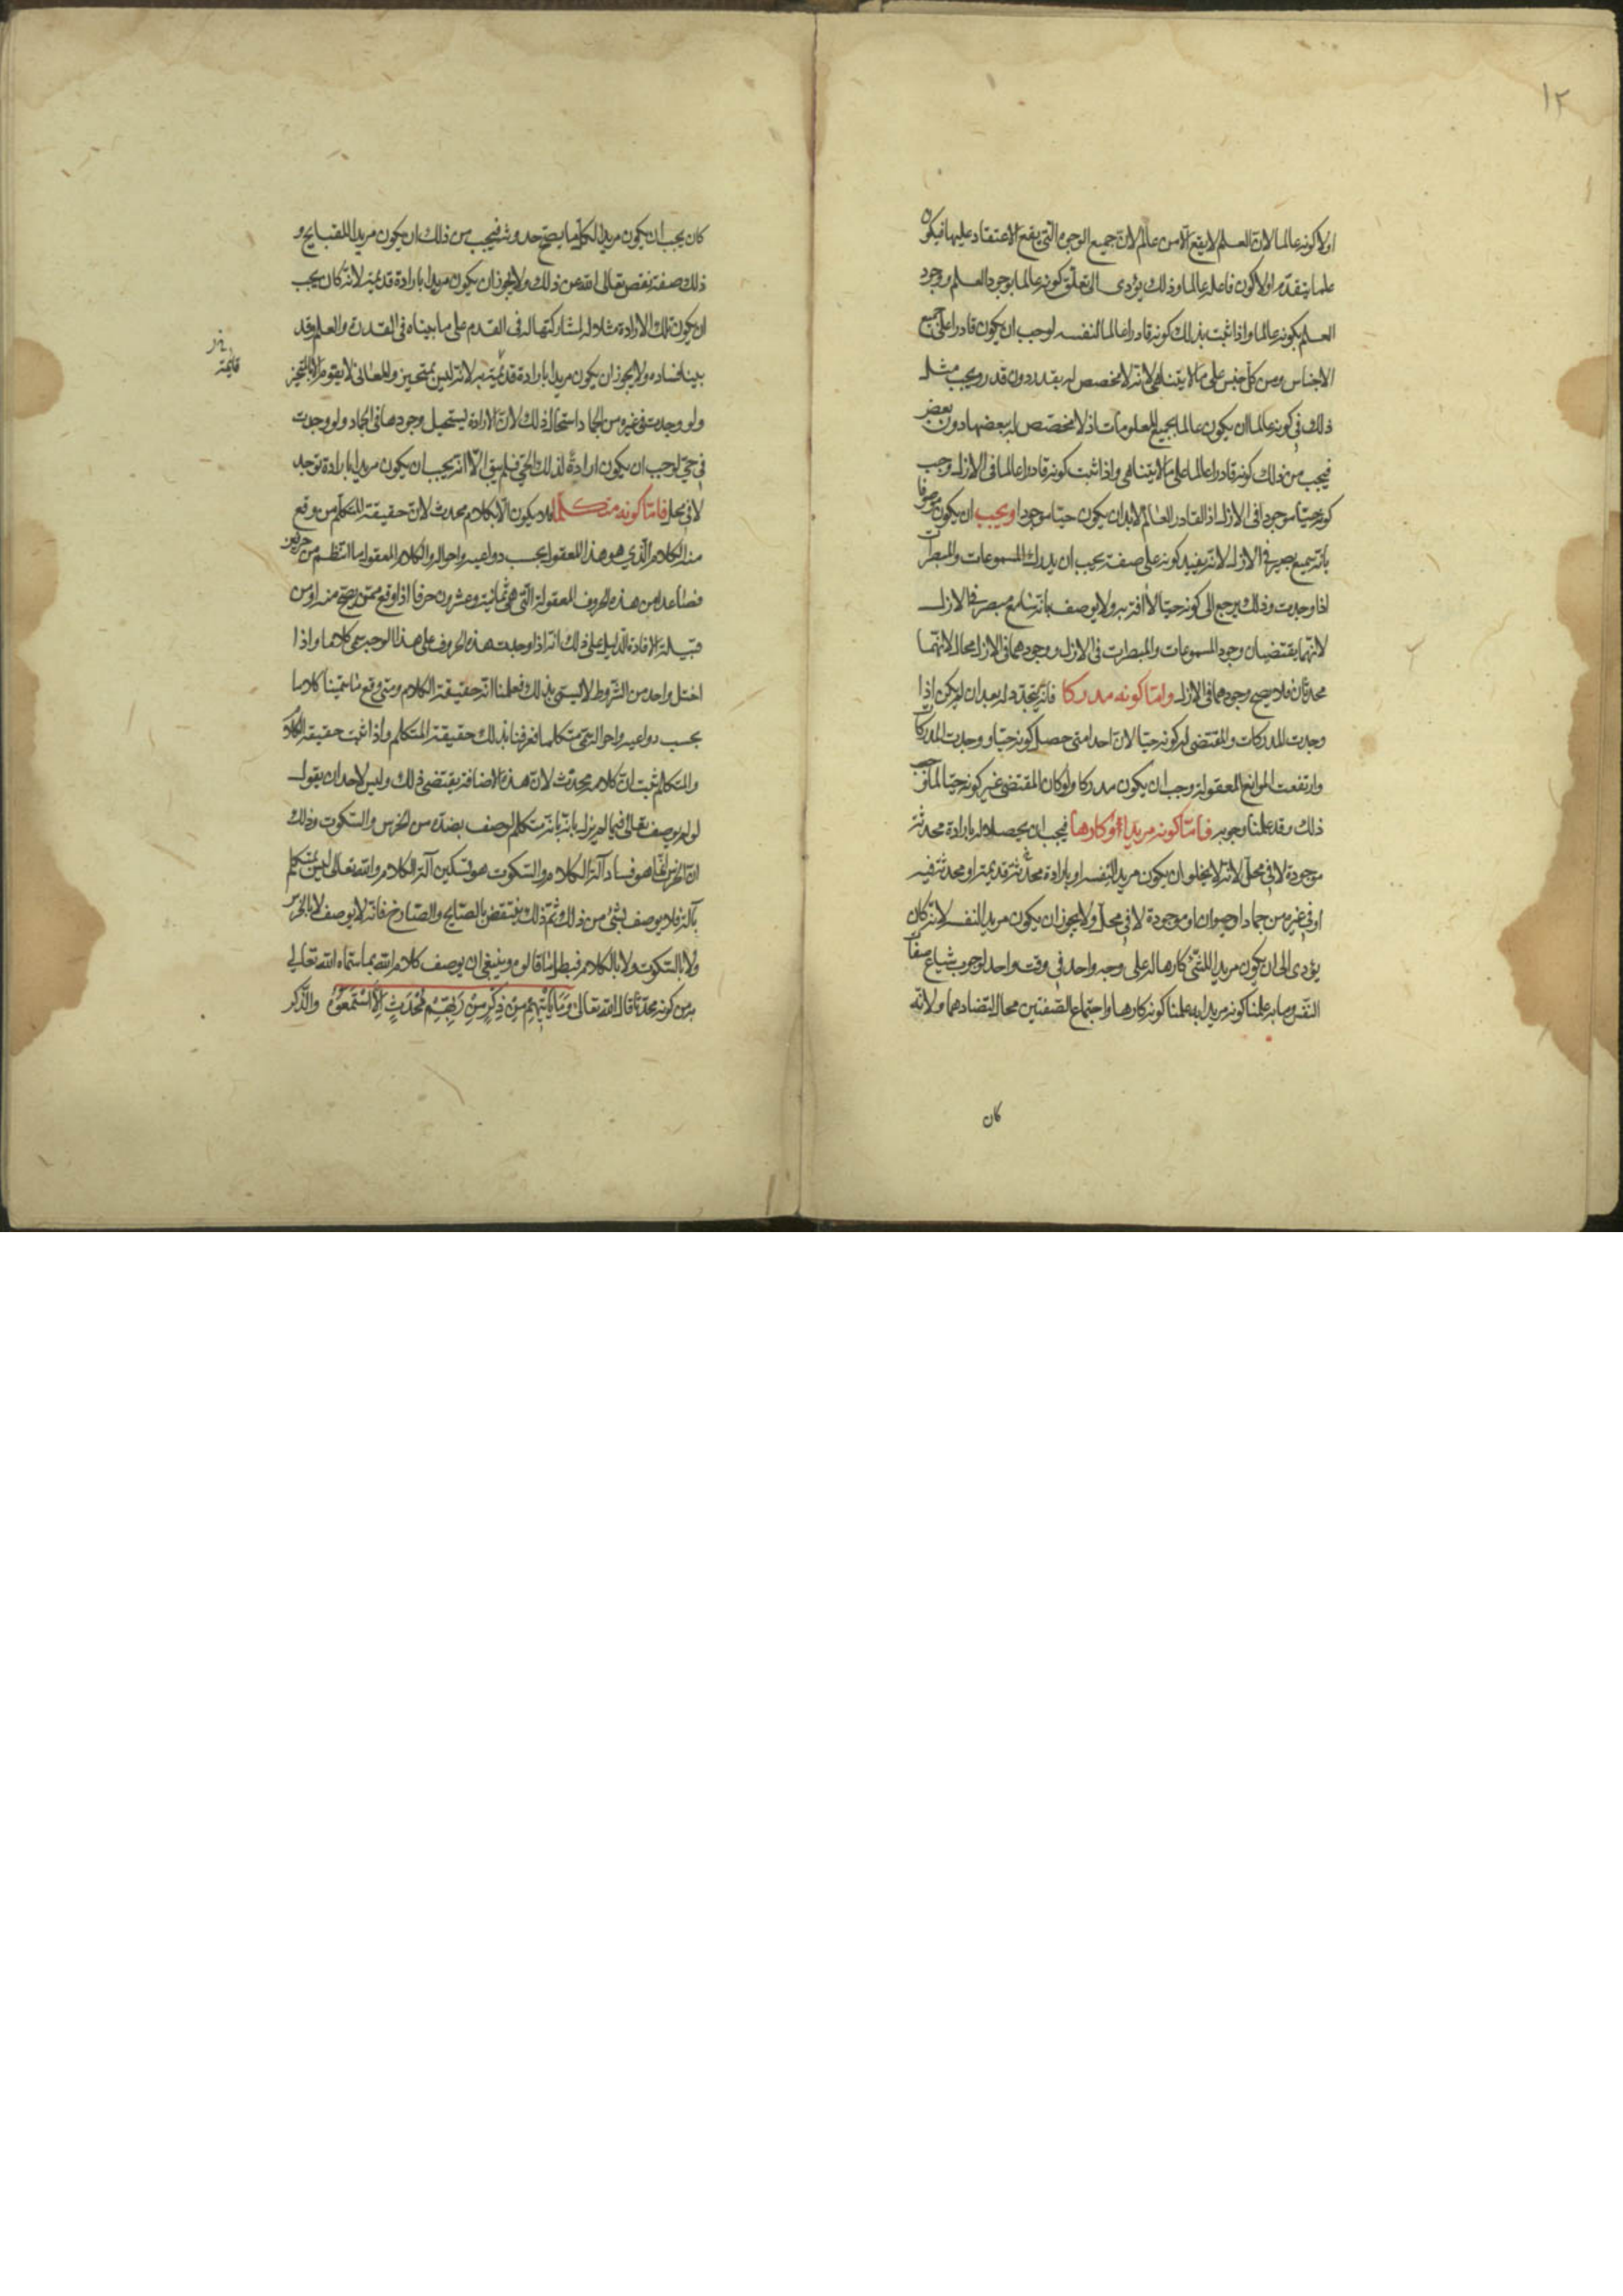 ١٢
اولا كونه عالما لان العلم لا يقع الا من عالم لان جميع الوجوه التي يقع الاعتقاد عليها فيكون
علما يتقدم اولا كون فاعله عالما وذلك يؤدى الى تعلق كونه عالما بوجود العلم ووجود
العلم بكونه عالما واذا ثبت بذلك كونه قادرا عالما لنفسه لوجب ان يكون قادرا على جميع
الاجناس ومن كل جنس على ما لا يتناهى لانه لا مخصص له بقدر دون قدر ويجب مثل
ذلك في كونه عالما ان يكون عالما بجميع المعلومات اذ لا مخصص له ببعضها دون بعض
فيجب من ذلك كونه قادرا عالما على ما لا يتناهى واذا ثبت كونه قادرا عالما في الازل وجب
كونه حيّا موجودا في الازل اذ القادر العالم لابد ان يكون حيّا موجودا ويجب ان يكون موصوفا
بانه سميع بصير في الازل لانه يفيد كونه على صفة يجب ان يدرك المسموعات والمبصرات
اذا وجدت وذلك يرجع الى كونه حيّا لا آفة به ولا يوصف بانه سامع مبصر في الازل
لانهما يقتضيان وجود المسموعات والمبصرات في الازل ووجودهما في الازل محال لانهما
محدثان فلا يصح وجودهما في الازل وامّا كونه مدركا فانه يتجدد له بعد ان لم يكن اذا
وجدت المدركات والمقتضى له كونه حيا لان احدا متى حصل كونه حيا ووجدت المدركات
وارتفعت الموانع المعقولة وجب ان يكون مدركا ولو كان المقتضى غير كونه حيّا لما وجب
ذلك وقد علمنا وجوبه فامّا كونه مريدا او كارها فيجب ان يحصلا له بارادة محدثة
موجودة لا في محل لانه لا يخلو ان يكون مريدا لنفسه او بارادة محدثة قديمة او محدثة فيه
او في غيره من جماد او حيوان او موجودة لا في محل ولا يجوز ان يكون مريدا لنفسه لانه كان
يؤدى الى ان يكون مريدا للشئ كارها له على وجه واحد في وقت واحد لوجوب شياع صفات
النفس وما به علمنا كونه مريدا به علمنا كونه كارها واجتماع الصفتين محال لتضادهما ولانه
كان
كان يجب ان يكون مريدا لكل ما يصح حدوثه فيجب من ذلك ان يكون مريدا للقبايح و
ذلك صفة نقص تعالى الله عن ذلك ولا يجوز ان يكون مريدا بارادة قديمة لانه كان يجب
ان يكون تلك الارادة مثلا له لمشاركتها له في القدم على ما بيناه في القدرة والعلم وقد
بينا فساده ولا يجوز ان يكون مريدا بارادة قديمة به لانه ليس بمتحيز والمعانى لا يقوم الا بالمتحيز
قائمة
ولو وجدت في غيره من الجماد استحال ذلك لان الارادة يستحيل وجودها في الجماد ولو وجدت
في حيّ لوجب ان يكون ارادة لذلك الحيّ فلم يبق الا انه يجب ان يكون مريدا بارادة توجد
لا في محل فامّا كونه متكلّما فلا يكون الا بكلام محدث لان حقيقة المتكلم من وقع
منه الكلام الذي هو هذا المعقول بحسب دواعيه واحواله والكلام المعقول ما انتظم من حرفين
فصاعدا من هذه الحروف المعقولة التي هي ثمانية وعشرون حرفا اذا وقع ممن يصح منه او من
قبيله الافادة الدليل على ذلك انه اذا وجدت هذه الحروف على هذا الوجه سمى كلاما واذا
اختل واحد من الشروط لا يسمى بذلك فعلمنا انه حقيقة الكلام ومتى وقع ما سميناه كلاما
بحسب دواعيه واحواله سمى متكلما فعرفنا بذلك حقيقة المتكلم واذا ثبت حقيقة الكلام
والمتكلم ثبت ان كلامه محدث لان هذه الاضافة يقتضى ذلك وليس لاحد ان يقول
لو لم يوصف تعالى فيما لم يزل بانه متكلم لوصف بضده من الخرس والسكوت وذلك
ان الخرس انما هو فساد آلة الكلام والسكوت هو تسكين آلة الكلام والله تعالى ليس بمتكلم
بآلة فلا يوصف بشئ من ذلك ثم ذلك ينتقض بالصايح والصارخ فانه لا يوصف لا بالخرس
ولا بالسكوت ولا بالكلام فبطل ما قالوه وينبغي ان يوصف كلام الله بما سماه الله تعالى
به من كونه محدثا قال الله تعالى وَمَا يَأْتِيهِمْ مِنْ ذِكْرٍ مِنْ رَبِّهِمْ مُحْدَثٍ اِلَّا اسْتَمَعُوهُ والذكر